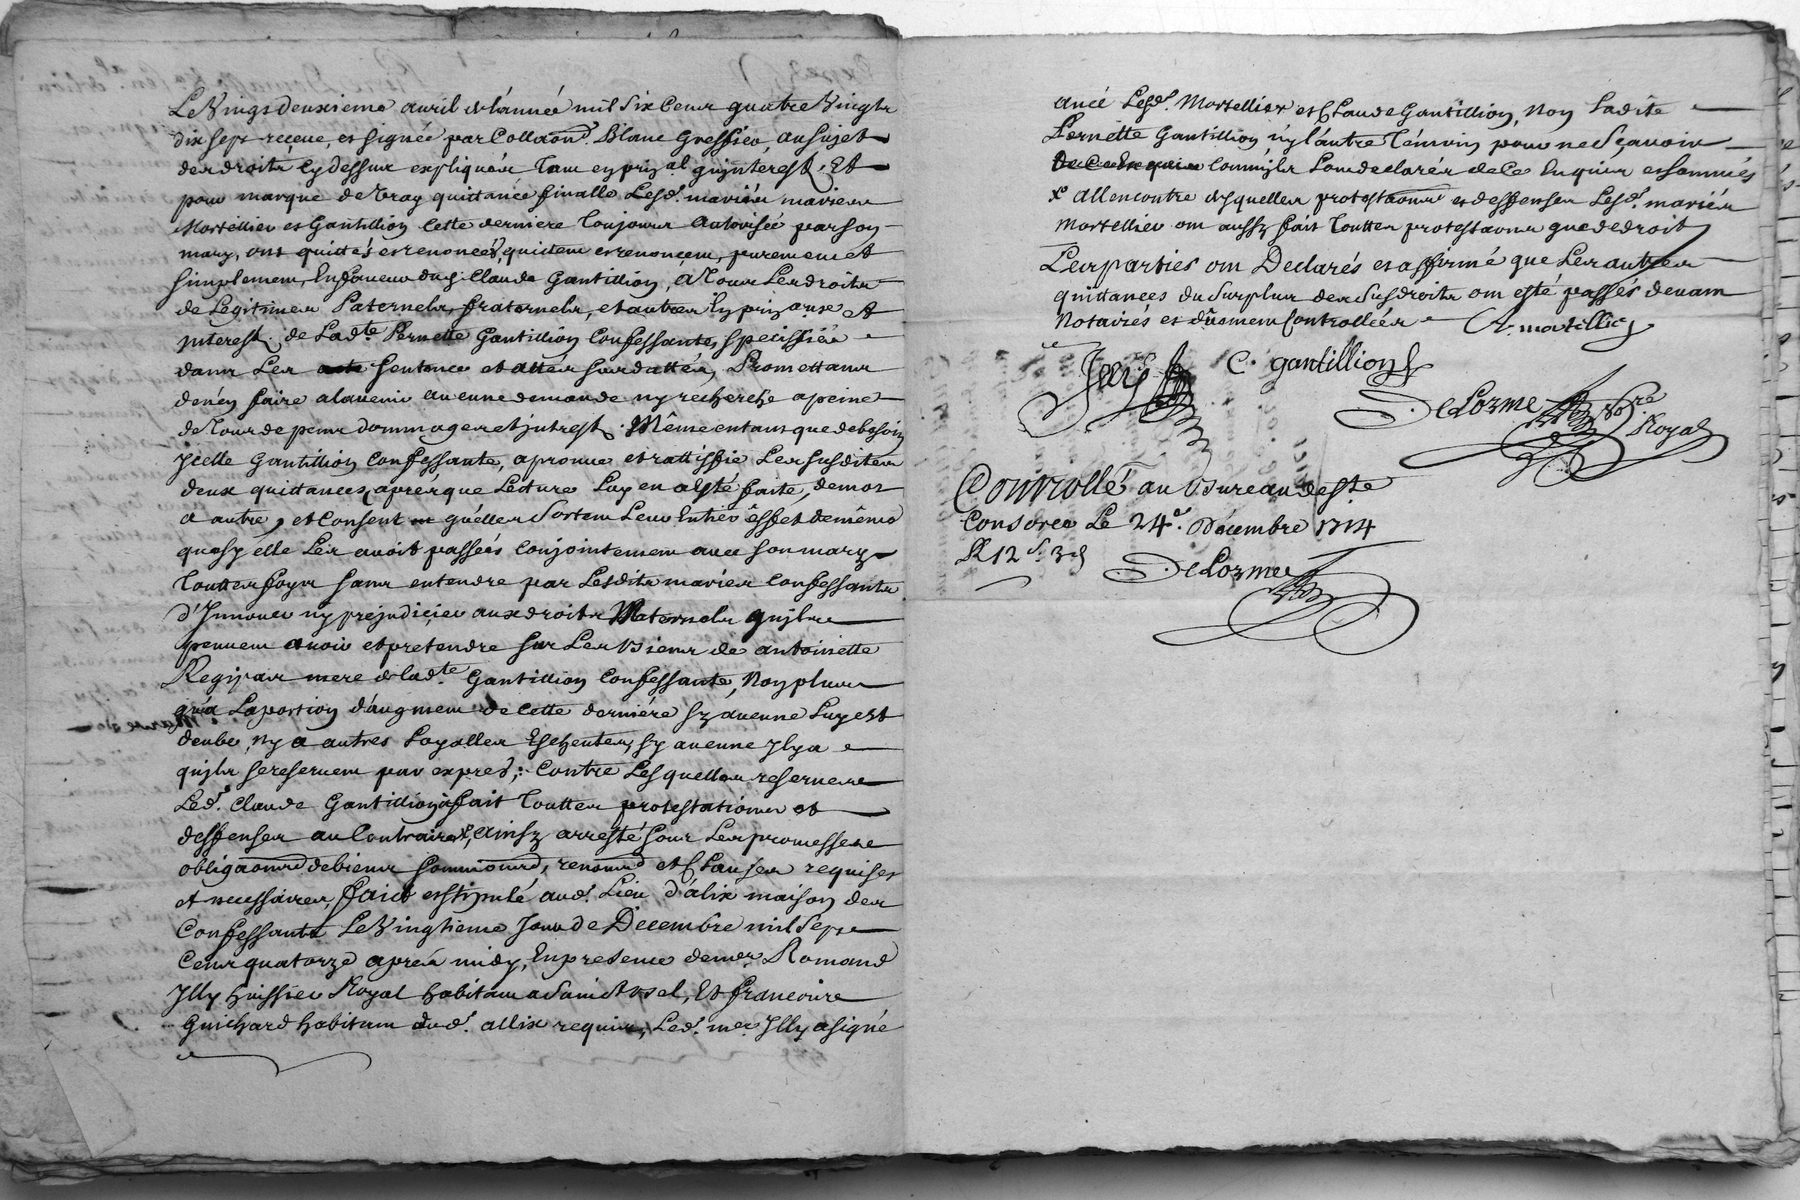 Le Vingt deuxieme auril de lánnée mil Six Cenr quatre Vingtz
dix sept receue, et signée par Collaond. Blanc Greffier, au sujet
des droitz cy dessus expliquéz tam en prizal qu'jnterest, Et
pour marque de Vray quittance finalle Lesd. mariéz
Mortellier et Gantillion cette derniere toujours autorisée par son
mary, ont quittés et renoncés, quittent et renoncent, purement et
simplement, En faveur dud. Claude Gantillion, a tous Les droitz
de Legitimes Paternelz, fraternelz, et autres En prizaux et
jnterest. de Lad.te Pernette Gantillion Confessante, speciffiés
dans Les sentence et attes susdattés, Promettant
dén faire alavenir aucune demande ny recherche apeine
de tous depens dommages et jntrest. Même entant que debesoin
Jcelle Gantillion Confessante, aprouue et rattiffie Les susdites
deux quittances, aprésque Lecture Luy en aesté faite, demot
a autre, et Consent quélles Sortent Leur Entier éffet deméme
quesy élle Les avoit passées Conjointement avec son mary
touttesfoys sans entendre par Lesdits mariés Confessants
d'Jnnover ny prejudicier aux droitz Maternelz qu'jlz
peuvent avoir et pretendre sur Les biens de antoinette
mere de Lad.te Gantillion Confessante, Non plus
quá Laportion dáugment de cette derniére sy aucune Luy est
deube, ny a autres Loyalles Echeutes, sy aucune Jl y a
qu'jlz sereservent par exprés; Contre Lesquelles reserves
Led. Claude Gantillion a fait touttes protestations et
deffenses au Contraire, Ainsy arresté sous Les promesses
obligaons de biens soumiond, renond et Clauses requises
et necessaires, faict et stipulé aud. Lieu d'alix maison des
Confessants Le Vingtieme Jour de Decembre mil Sept
Cent quatorze aprés midy, En presence de mer. Romand
Jlly huissier Royal habitant a Sainct , Et francois
Guichard habitant dud. allix requis, Led. mer. Jlly a signé
avec Lesd. Mortellier et Claude Gantillion, Non Ladite
Pernette Gantillion, ny lautre témoin pour ne Sçavoir
Comme jlz L'ont declarés de ce Enquis et sommés
x Allencontre desquelles protestaons et deffenses Lesd. mariés
Mortellier ont aussy fait touttes protestaons que de droit
Les parties ont Declarés et affirmé que Les autres
quittances du Surplus des Susdroits ont esté passés devant
Notaires et dûement Controllées C. mortillier
Jlly C. gantillion
DeLorme Nore. Royal
Controllé au Bureau de Ste
Consorce Le 24e. Décembre 1714
R 12 s. 3 d
DeLorme